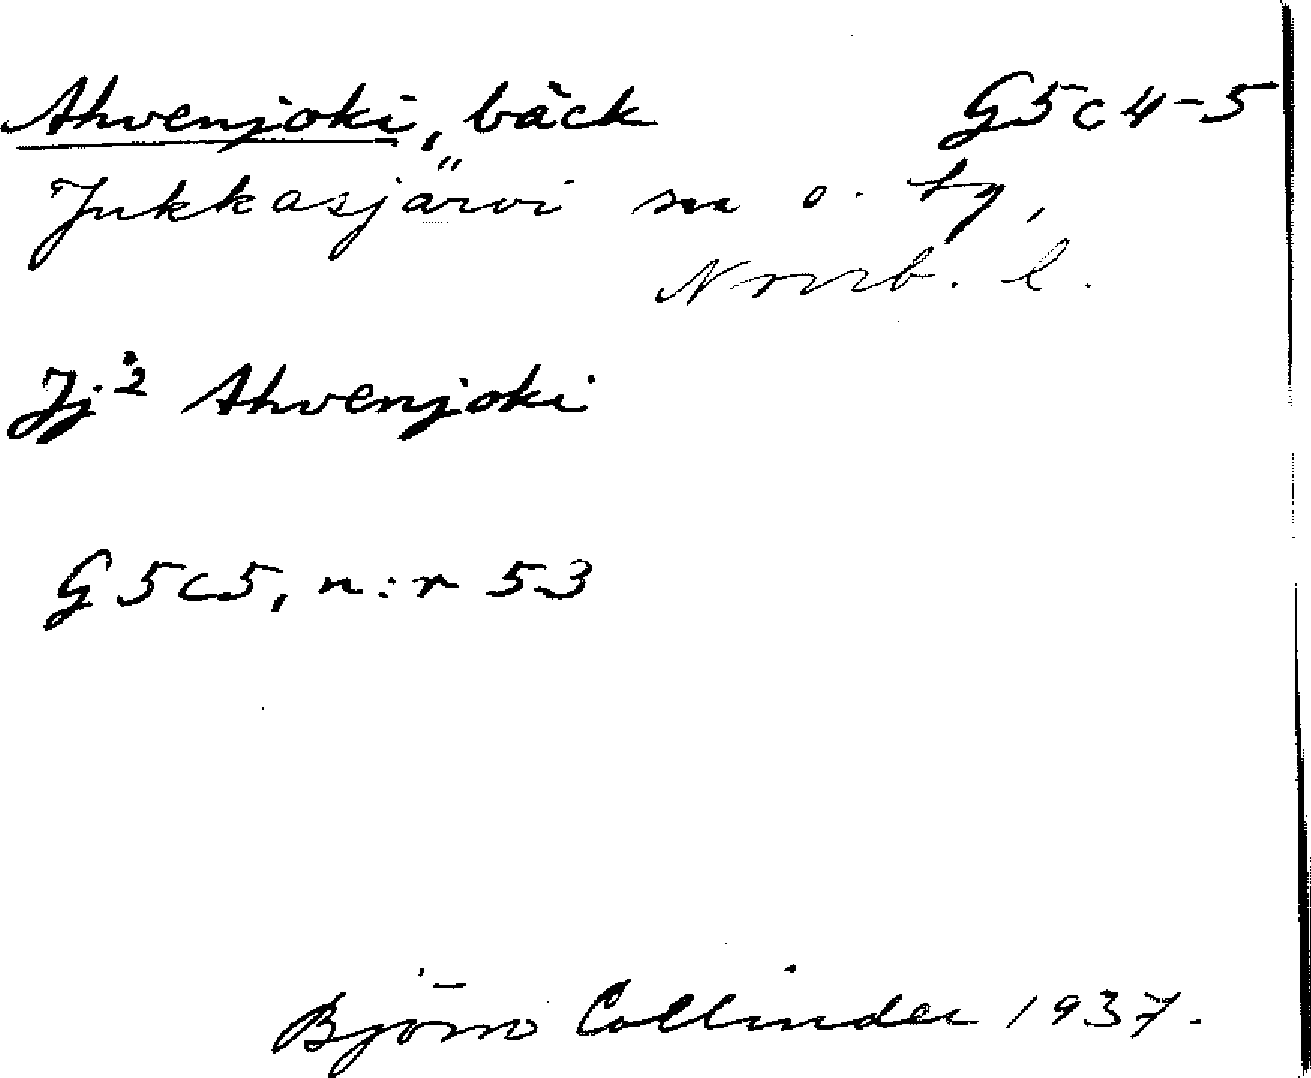 Ahvenjoki, bäck G5c4-5
Jukkasjärvi sn o. tg,
Norrb. l.
Jj² Ahvenjoki
G5c5, n:r 53
Björn Collinder 1937.